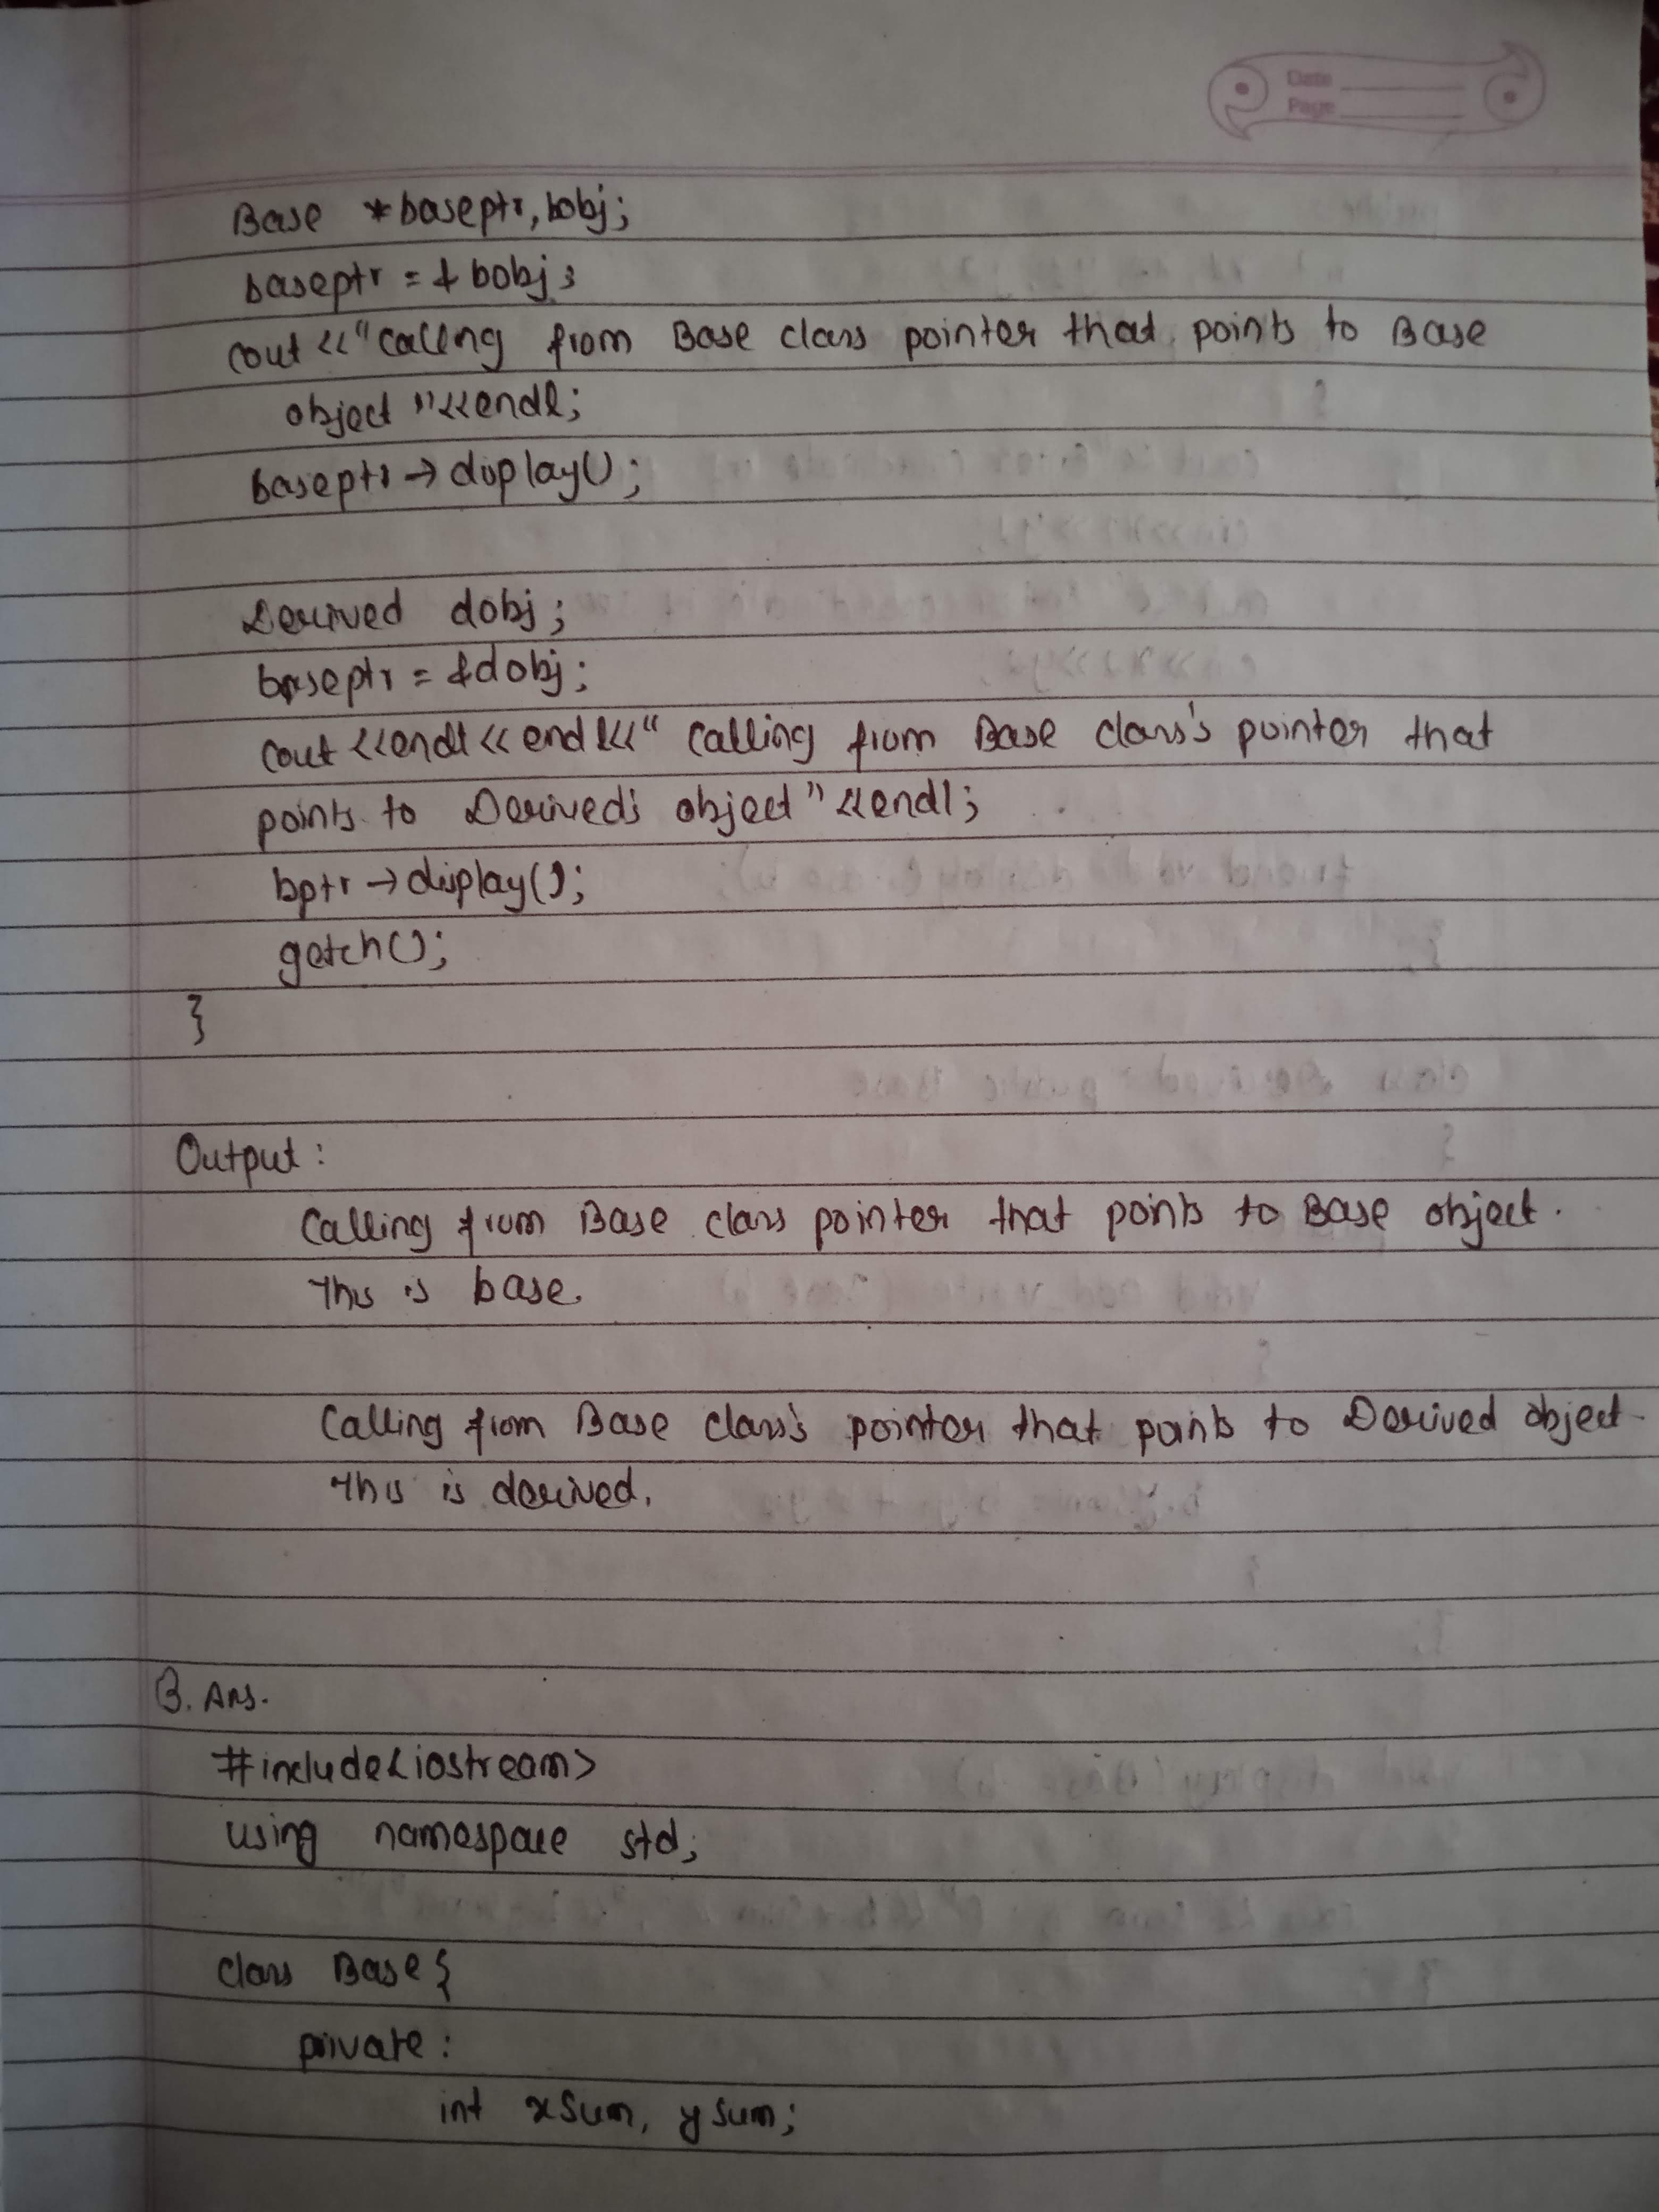 Date
Page
Base *baseptr, bobj;
baseptr = & bobj;
cout <<"calling from Base class pointer that points to Base
object"<<endl;
baseptr → display();
Derived dobj;
baseptr = &dobj;
cout <<endl<<endl<<" Calling from Base class's pointer that
points to Derived's object"<<endl;
bptr → display();
getch();
}
Output:
Calling from Base class pointer that points to Base object.
This is base.
Calling from Base class's pointer that points to Derived object.
This is derived.
3. Ans.
#include<iostream>
using namespace std;
class Base{
private:
int xSum, ySum;